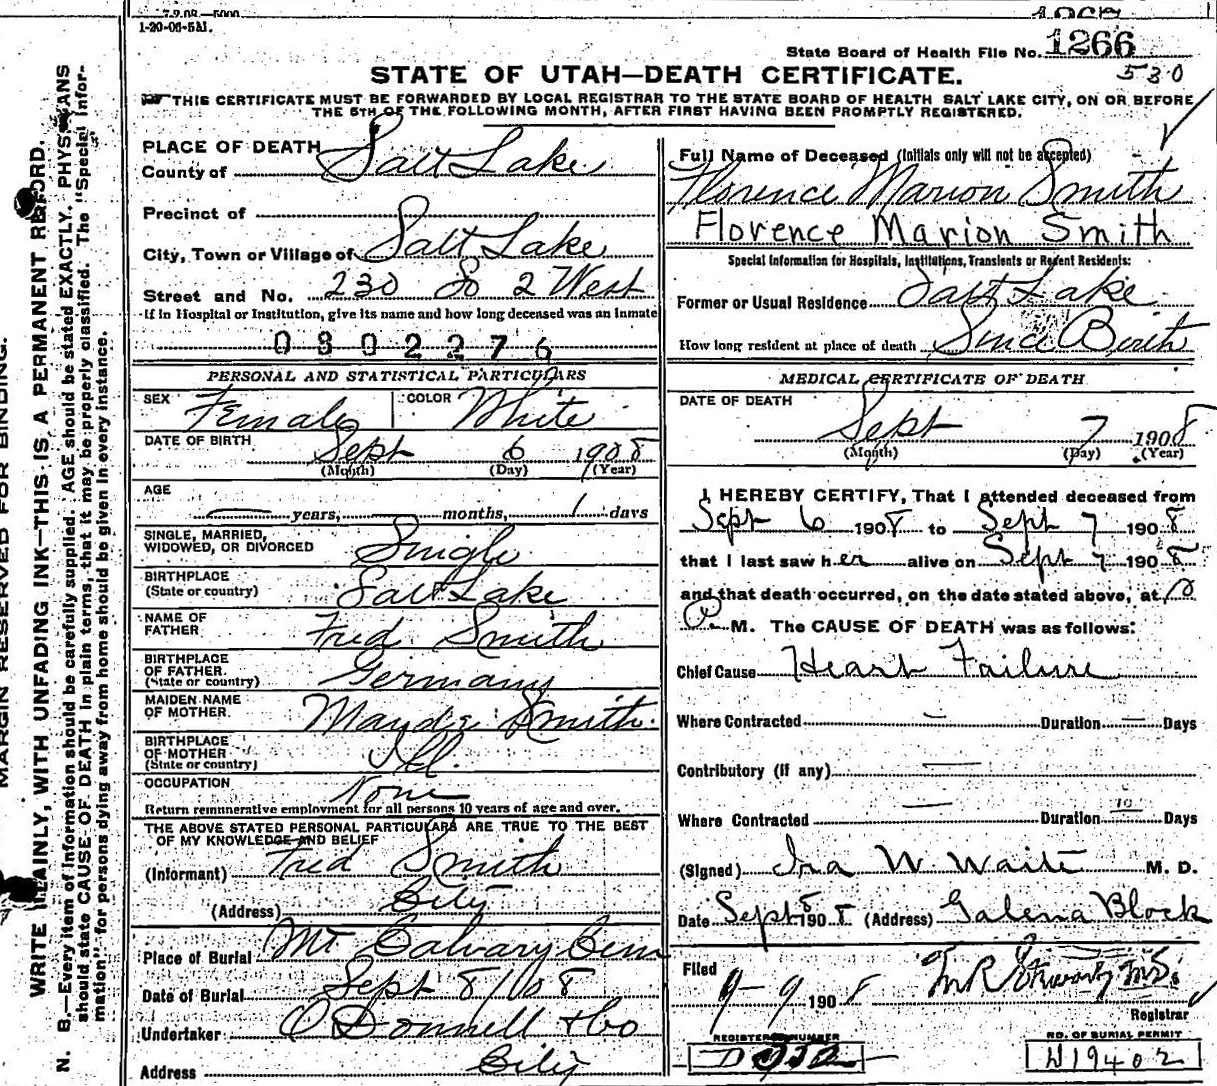 7-2 08—5000
1-20-06-5M.
1266
State Board of Health File No. 1266
530
STATE OF UTAH—DEATH CERTIFICATE.
THIS CERTIFICATE MUST BE FORWARDED BY LOCAL REGISTRAR TO THE STATE BOARD OF HEALTH SALT LAKE CITY, ON OR BEFORE
THE 5TH OF THE FOLLOWING MONTH, AFTER FIRST HAVING BEEN PROMPTLY REGISTERED.
MARGIN RESERVED FOR BINDING.
WRITE PLAINLY, WITH UNFADING INK—THIS IS A PERMANENT RECORD.
N. B.—Every item of information should be carefully supplied. AGE should be stated EXACTLY. PHYSICIANS
should state CAUSE OF DEATH in plain terms, that it may be properly classified. The "Special Infor-
mation" for persons dying away from home should be given in every instance.
PLACE OF DEATH
County of Salt Lake
Precinct of
City, Town or Village of Salt Lake
Street and No. 230 So 2 West
If in Hospital or Institution, give its name and how long deceased was an inmate
0802276
PERSONAL AND STATISTICAL PARTICULARS
SEX Female COLOR White
DATE OF BIRTH Sept 6 1908
(Month) (Day) (Year)
AGE — years, — months, 1 days
SINGLE, MARRIED,
WIDOWED, OR DIVORCED Single
BIRTHPLACE
(State or country) Salt Lake
NAME OF
FATHER Fred Smith
BIRTHPLACE
OF FATHER
(State or country) Germany
MAIDEN NAME
OF MOTHER Maude Smith
BIRTHPLACE
OF MOTHER
(State or country) Ill.
OCCUPATION None
Return remunerative employment for all persons 10 years of age and over.
THE ABOVE STATED PERSONAL PARTICULARS ARE TRUE TO THE BEST
OF MY KNOWLEDGE AND BELIEF
(Informant) Fred Smith
(Address) City
Place of Burial Mt Calvary Cem
Date of Burial Sept 8/08
Undertaker O'Donnell & Co
Address City
Full Name of Deceased (Initials only will not be accepted)
Florence Marion Smith
Florence Marion Smith
Special Information for Hospitals, Institutions, Transients or Recent Residents:
Former or Usual Residence Salt Lake
How long resident at place of death Since Birth
MEDICAL CERTIFICATE OF DEATH
DATE OF DEATH
Sept 7 1908
(Month) (Day) (Year)
I HEREBY CERTIFY, That I attended deceased from
Sept 6 1908 to Sept 7 1908
that I last saw her alive on Sept 7 1908
and that death occurred, on the date stated above, at 10
P. M. The CAUSE OF DEATH was as follows:
Chief Cause Heart Failure
Where Contracted — Duration — Days
Contributory (if any) —
Where Contracted — Duration Days
(Signed) Ira W Waite M. D.
Date Sept 8 1908 (Address) Galena Block
Filed 9-9 1908
Registrar
REGISTERED NUMBER
NO. OF BURIAL PERMIT
19402